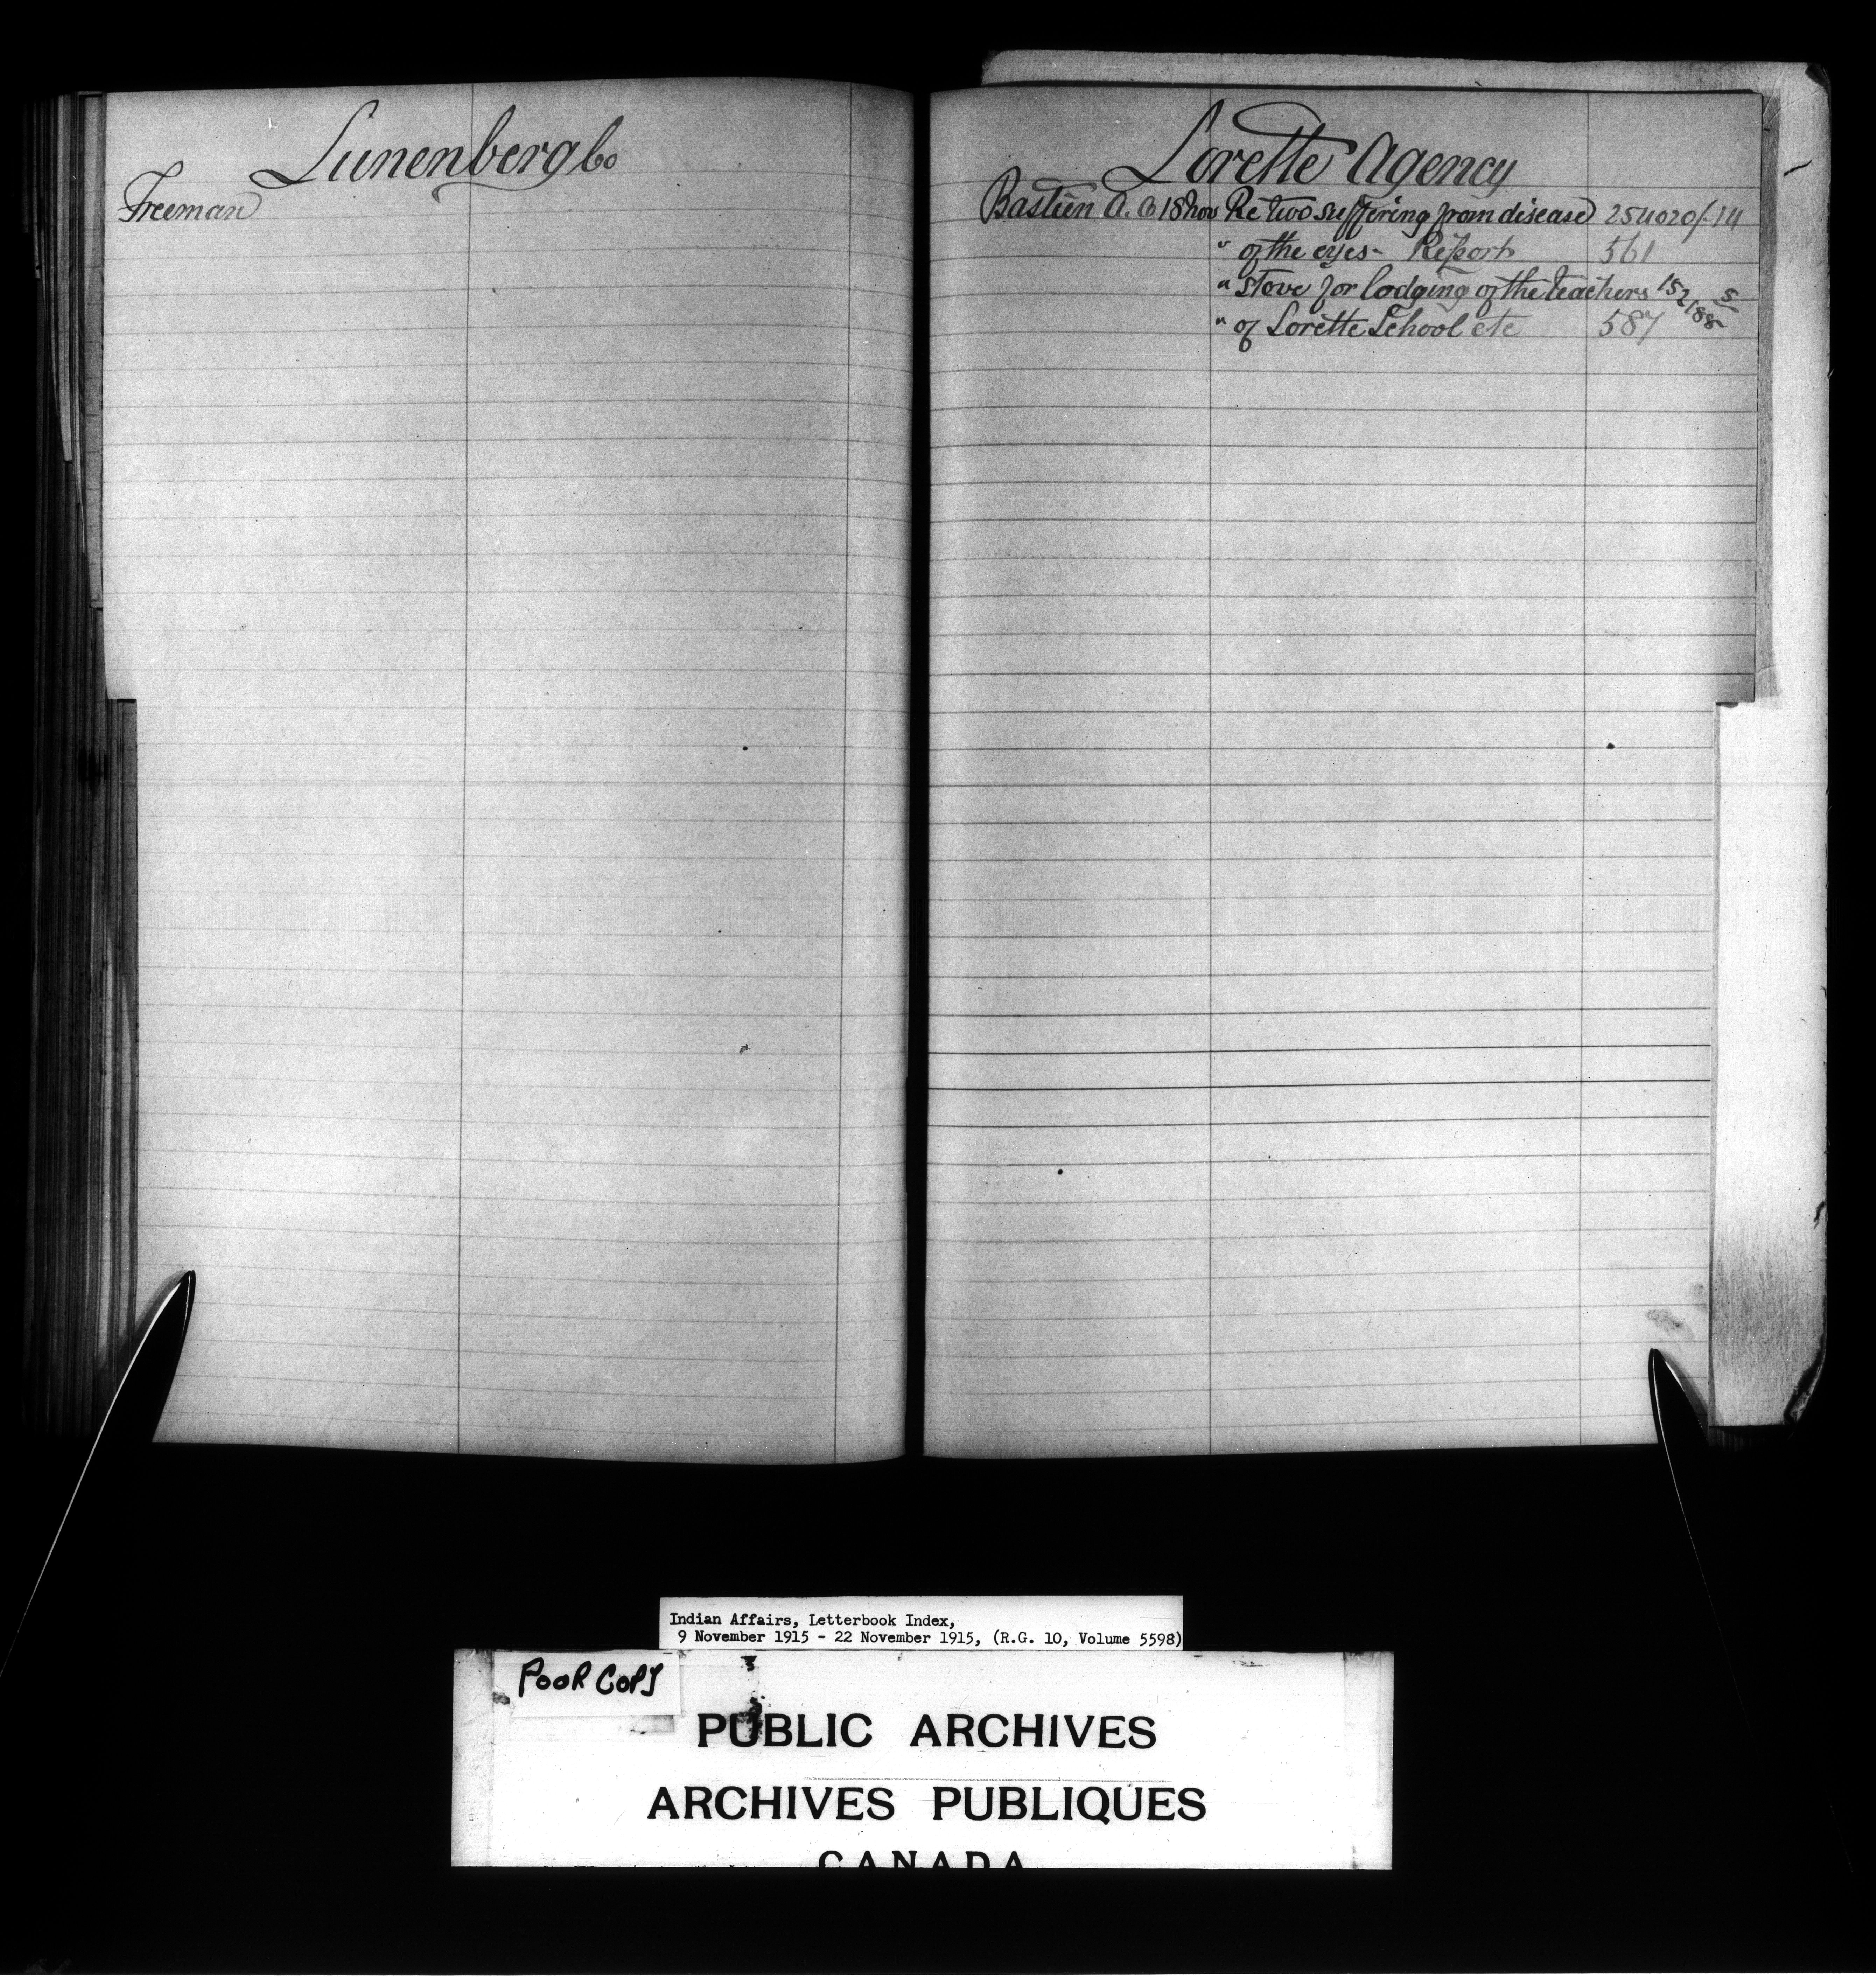 Lunenberg Co
Freeman
Lorette Agency
Bastien A. O 18 Nov Re two suffering from disease 254020/-14
" of the eyes - Report 561
" Stove for lodging of the teachers 152188 5
" of Lorette School etc 587
Indian Affairs, Letterbook Index,
9 November 1915 - 22 November 1915, (R.G. 10, Volume 5598)
POOR COPY
PUBLIC ARCHIVES
ARCHIVES PUBLIQUES
CANADA